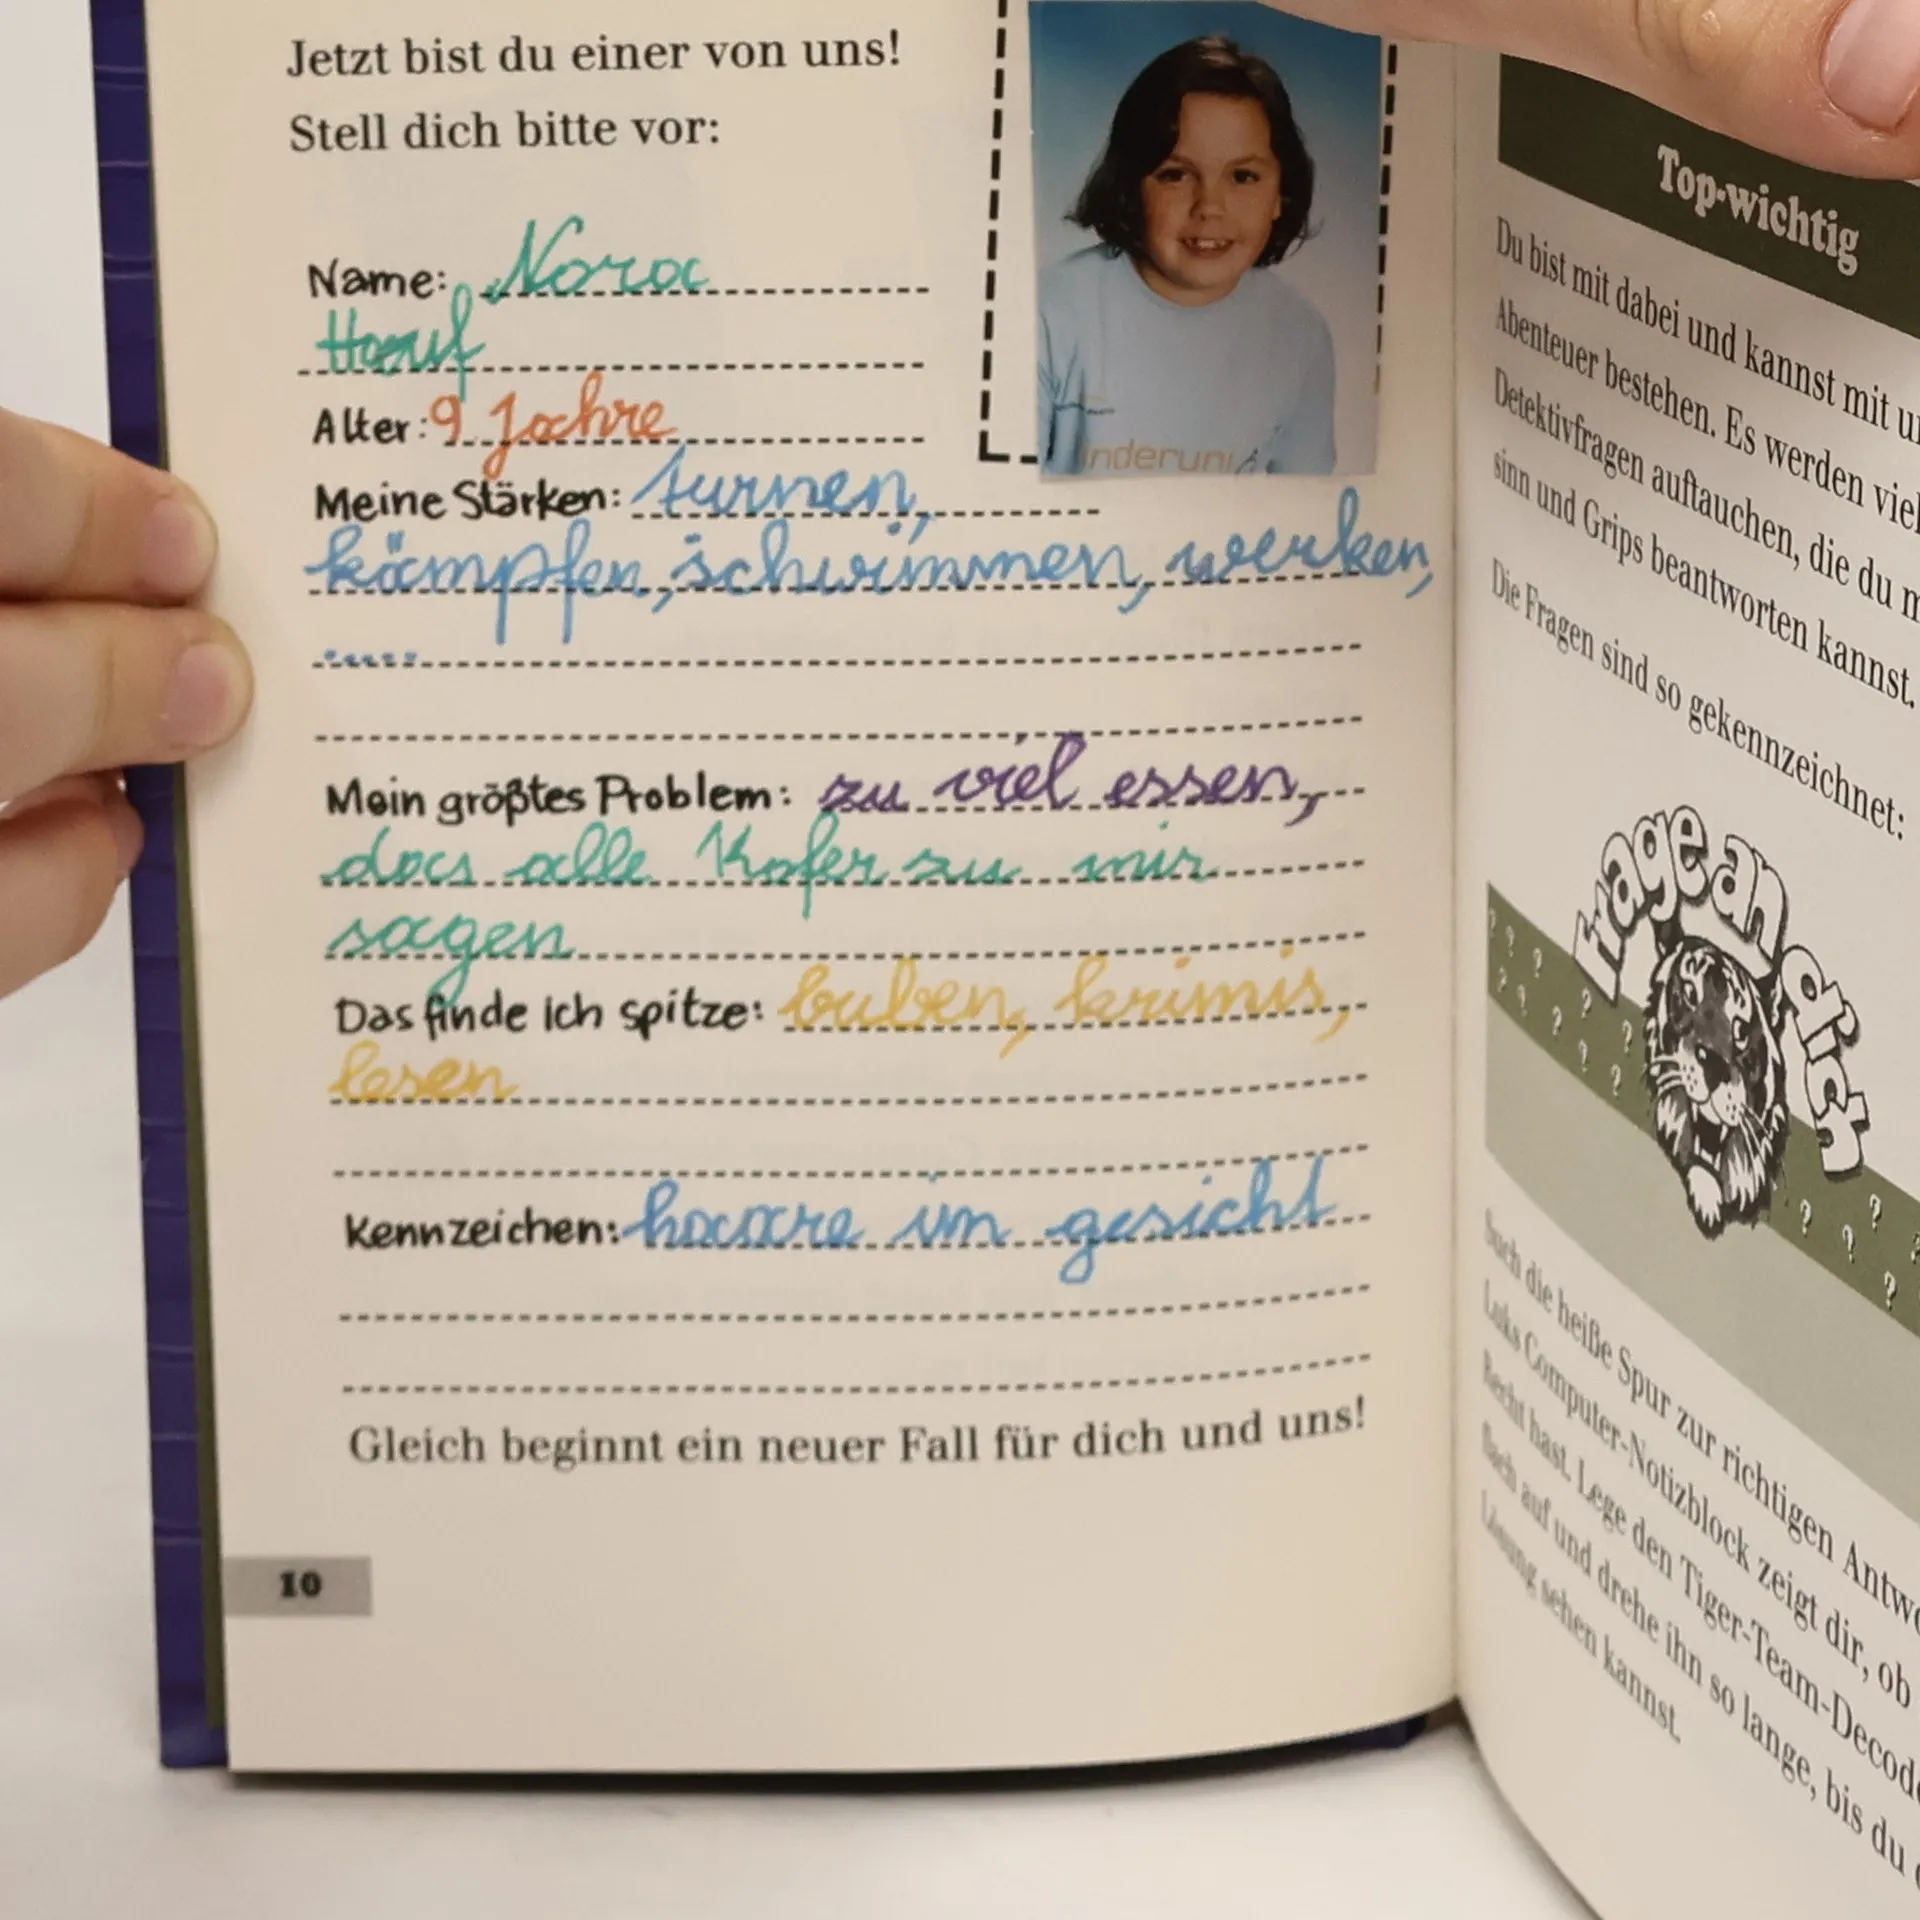 Jetzt bist du einer von uns!
Stell dich bitte vor:
Name: Nora
Alter: 9 Jahre
Meine Stärken: turnen,
kämpfen, schwimmen, werken,
.....
Mein größtes Problem: zu viel essen,
das alle Kofer zu mir
sagen
Das finde ich spitze: buben, krimis,
lesen
Kennzeichen: haare im gesicht
Gleich beginnt ein neuer Fall für dich und uns!
10
inderuni
Top-wichtig
Du bist mit dabei und kannst mit
Abenteuer bestehen. Es werden
Detektivfragen auftauchen, die du
sinn und Grips beantworten kannst.
Die Fragen sind so gekennzeichnet:
Frage an dich
Such die heiße Spur zur richtigen
Luks Computer-Notizblock zeigt dir, ob
Recht hast. Lege den Tiger-Team-
flach auf und drehe ihn so lange, bis du
Lösung sehen kannst.